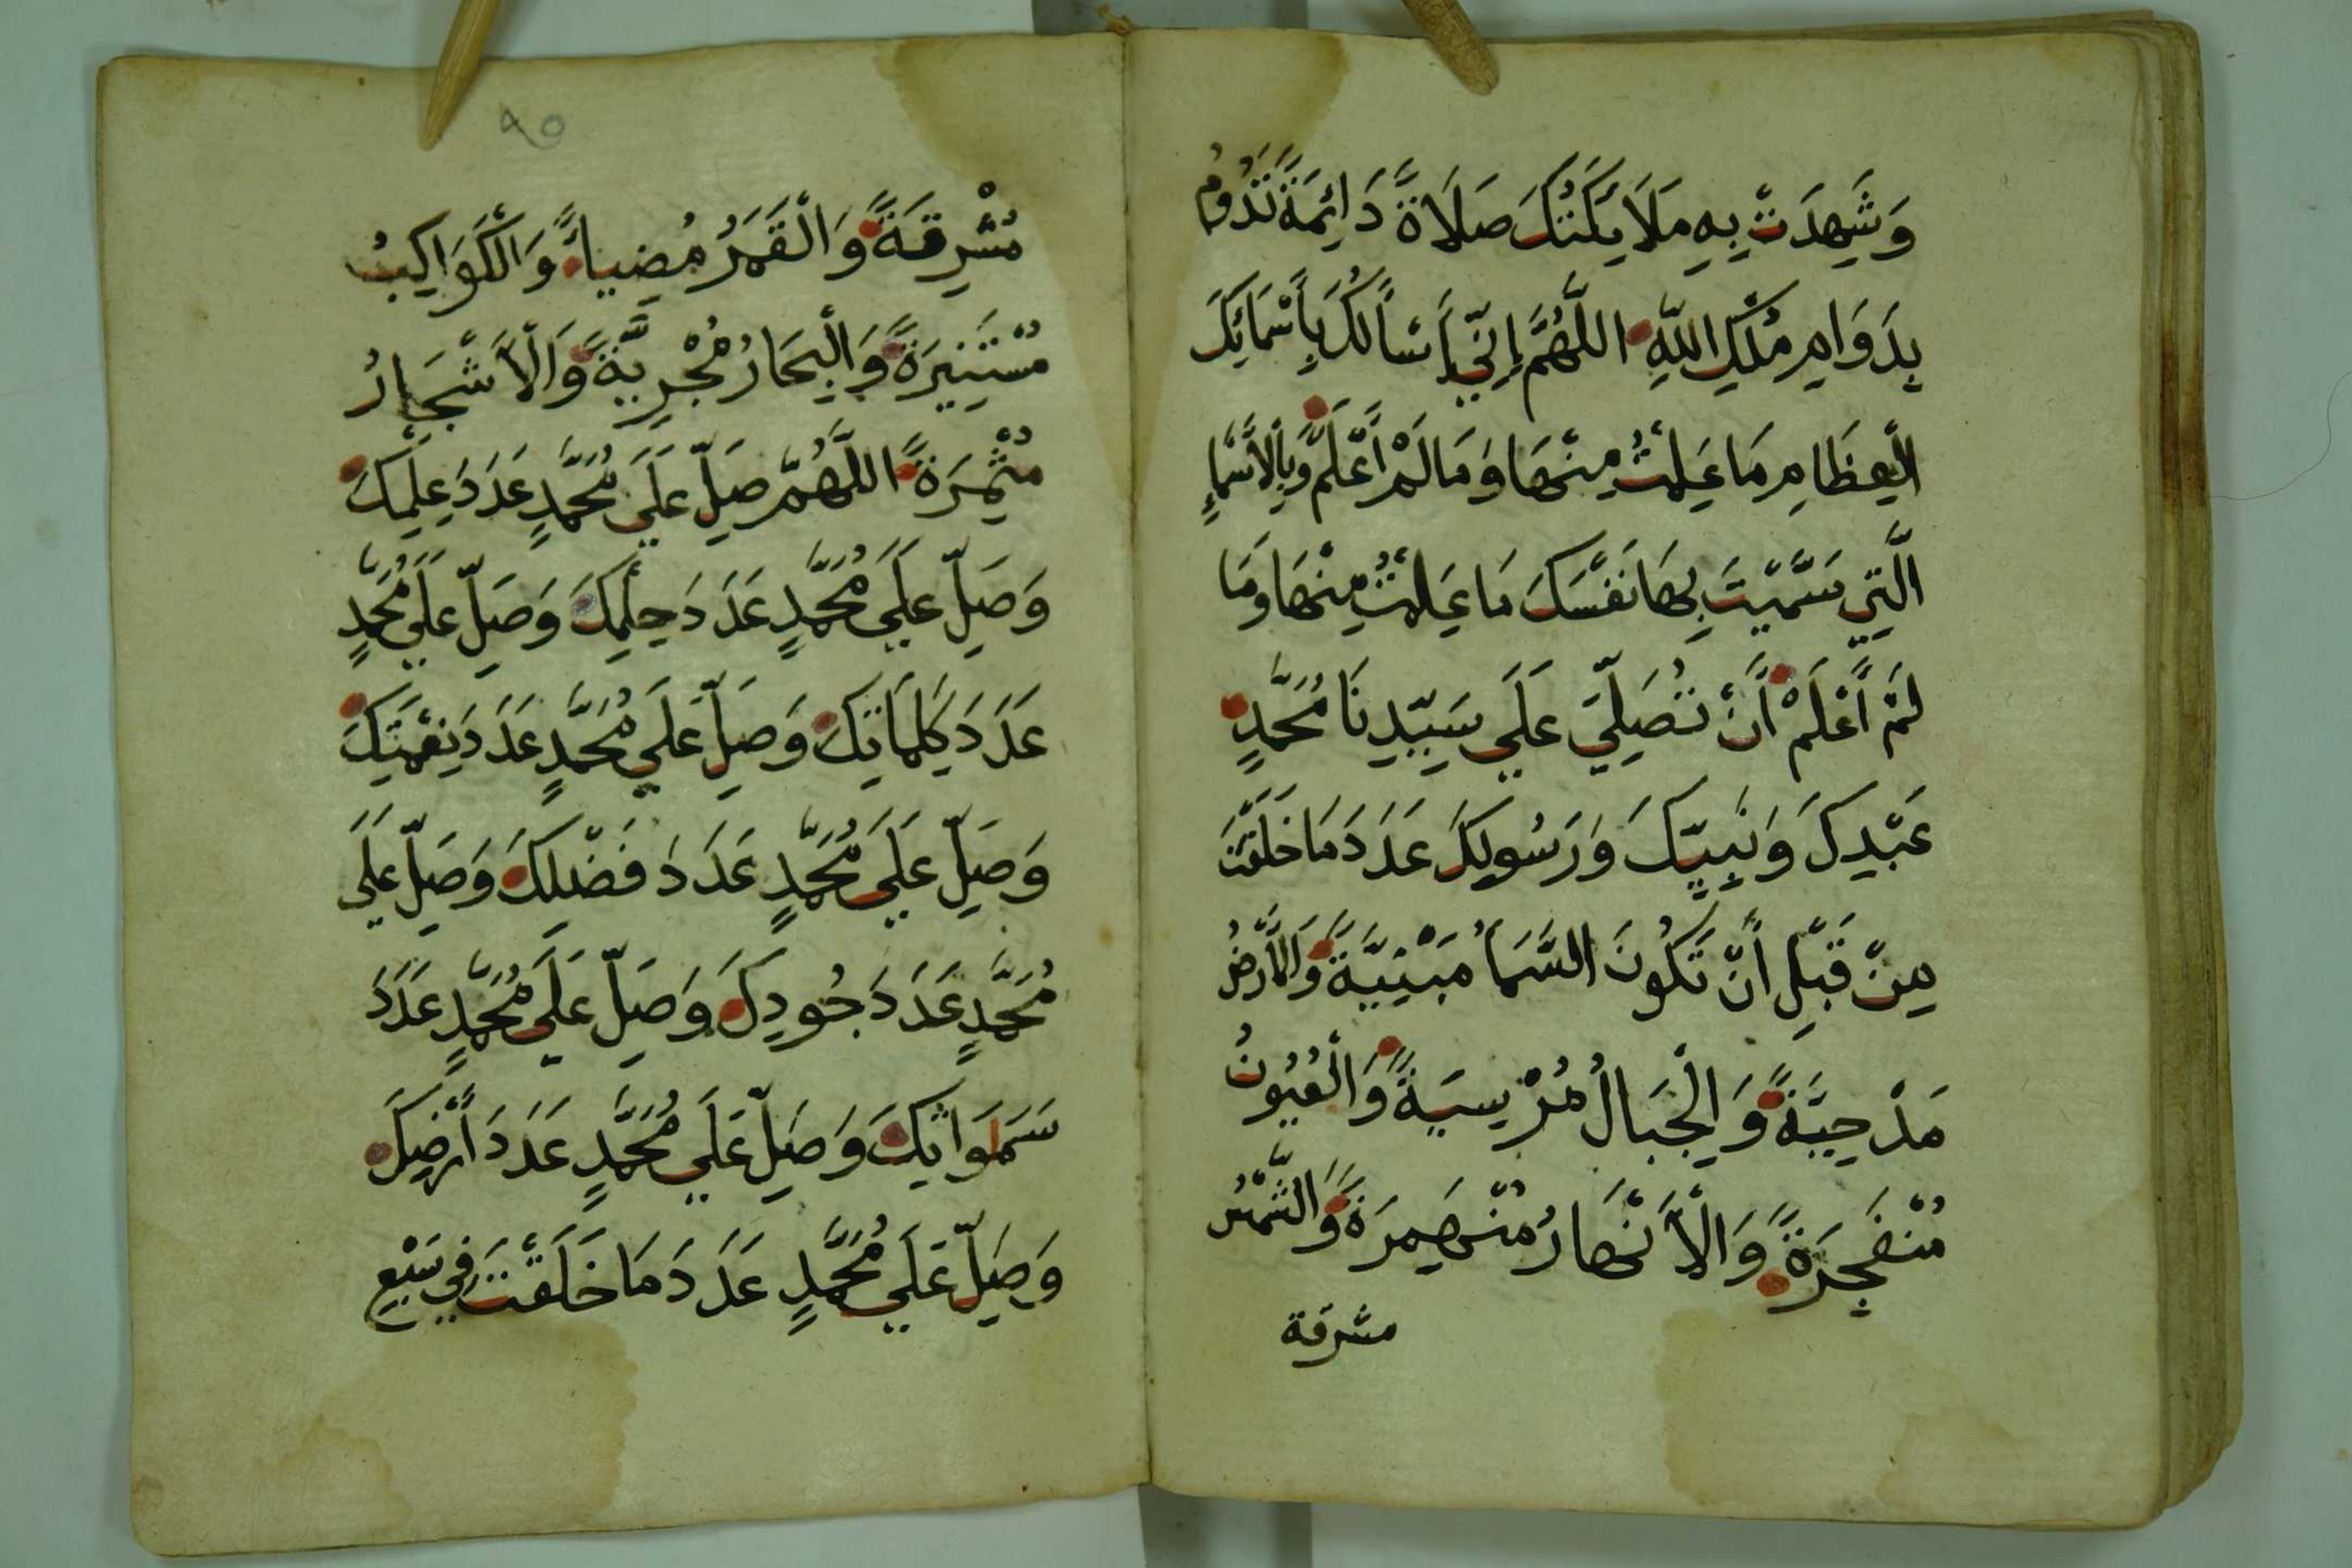 وَشَهِدَتْ بِهِ مَلَايِكَتُكَ صَلَاةً دَائِمَةً تَدُومُ
بِدَوَامِ مُلْكِ اللَّهِ اللَّهُمَّ إِنِّي أَسْأَلُكَ بِأَسْمَائِكَ
الْعِظَامِ مَا عَلِمْتُ مِنْهَا وَمَا لَمْ أَعْلَمْ وَبِالْأَسْمَاءِ
الَّتِي سَمَّيْتَ بِهَا نَفْسَكَ مَا عَلِمْتُ مِنْهَا وَمَا
لَمْ أَعْلَمْ أَنْ تُصَلِّيَ عَلَى سَيِّدِنَا مُحَمَّدٍ
عَبْدِكَ وَنَبِيِّكَ وَرَسُولِكَ عَدَدَ مَا خَلَقْتَ
مِنْ قَبْلِ أَنْ تَكُونَ السَّمَاُ مَبْنِيَّةً وَالْأَرْضُ
مَدْحِيَّةً وَالْجِبَالُ مُرْسِيَةً وَالْعُيُونُ
مُنْفَجِرَةً وَالْأَنْهَارُ مُنْهَمِرَةً وَالشَّمْسُ
مشرقة
٩٥
مُشْرِقَةً وَالْقَمَرُ مُضِياءً وَالْكَوَاكِبُ
مُسْتَنِيرَةً وَالْبِحَارُ مُجْرِيَّةً وَالْأَشْجَارُ
مُثْمِرَةً اللَّهُمَّ صَلِّ عَلَى مُحَمَّدٍ عَدَدَ عِلْمِكَ
وَصَلِّ عَلَى مُحَمَّدٍ عَدَدَ حِلْمِكَ وَصَلِّ عَلَى مُحَمَّدٍ
عَدَدَ كَلِمَاتِكَ وَصَلِّ عَلَى مُحَمَّدٍ عَدَدَ نِعْمَتِكَ
وَصَلِّ عَلَى مُحَمَّدٍ عَدَدَ فَضْلِكَ وَصَلِّ عَلَى
مُحَمَّدٍ عَدَدَ جُودِكَ وَصَلِّ عَلَى مُحَمَّدٍ عَدَدَ
سَمَوَاتِكَ وَصَلِّ عَلَى مُحَمَّدٍ عَدَدَ أَرْضِكَ
وَصَلِّ عَلَى مُحَمَّدٍ عَدَدَ مَا خَلَقْتَ فِي سَبْعِ